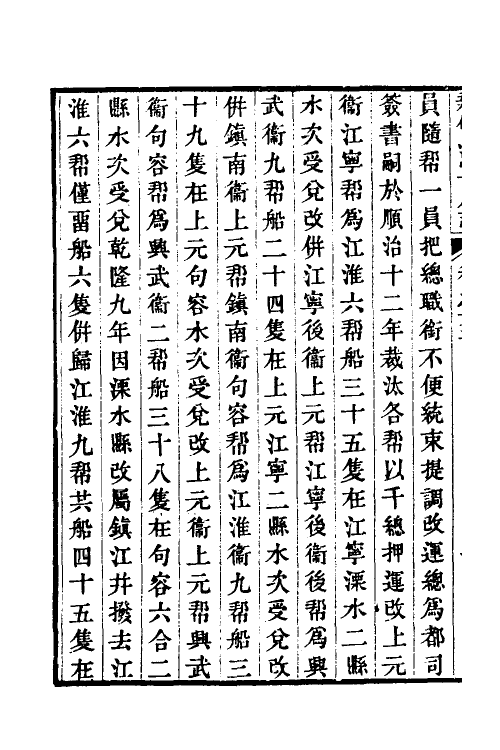 員隨帮一員把總職銜不便統束提調改運總爲都司
簽書嗣於順治十二年裁汰各帮以千總押運改上元
衞江寧帮爲江淮六帮船三十五隻在江寧溧水二縣
水次受兌改併江寧後衞上元帮江寧後衞後帮爲興
武衞九帮船二十四隻在上元江寧二縣水次受兌改
併鎮南衞上元帮鎮南衞句容帮爲江淮衞九帮船三
十九隻在上元句容水次受兌改上元衞上元帮興武
衞句容帮爲興武衞二帮船三十八隻在句容六合二
縣水次受兌乾隆九年因溧水縣改屬鎮江并撥去江
淮六帮僅畱船六隻併歸江淮九帮共船四十五隻在